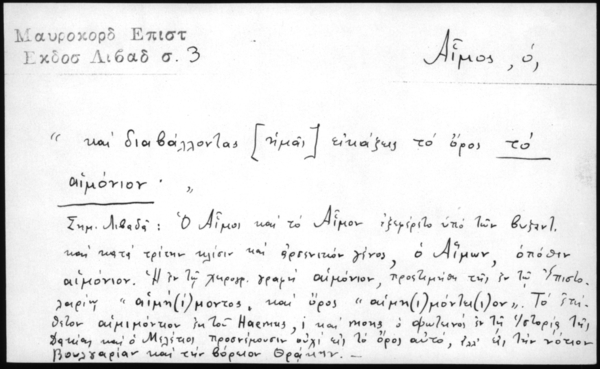 Μαυροκορδ Επιστ
Εκδοσ Λιβαδ σ. 3
Αἷμος, ὁ,
“ καὶ διαβάλλοντας [ἡμᾶς] εἰκάζεις τὸ ὄρος τὸ
αἱμόνιον· „
Σημ. Λιβαδᾶ: Ὁ Αἷμος καὶ τὸ Αἷμον ἐξεφέρετο ὑπὸ τῶν βυζαντ.
καὶ κατὰ τρίτην κλίσιν καὶ ἀρσενικὸν γένος, ὁ Αἵμων, ὁπόθεν
αἱμόνιον. Ἡ ἐν τῷ χειρογρ. γραφὴ αἱμόνιον, προετιμήθη τῆς ἐν τῇ Ἐπιστο-
λαρίῳ “ αἱμη(ι)μοντος, καὶ ὄρος “ αἱμη(ι)μόντι(ι)ον”. Τὸ ἐπί-
θετον αἱμιμόντιον ἐκ τοῦ Haemus, καὶ mons ὁ Φωτεινὸς ἐν τῇ Ἱστορίᾳ τῆς
Δακίας καὶ ὁ Μελέτιος προσνέμουσιν οὐχὶ εἰς τὸ ὄρος αὐτό, ἀλλ' εἰς τὴν νότιον
Βουλγαρίαν καὶ τὴν βόρειον Θρᾴκην. —